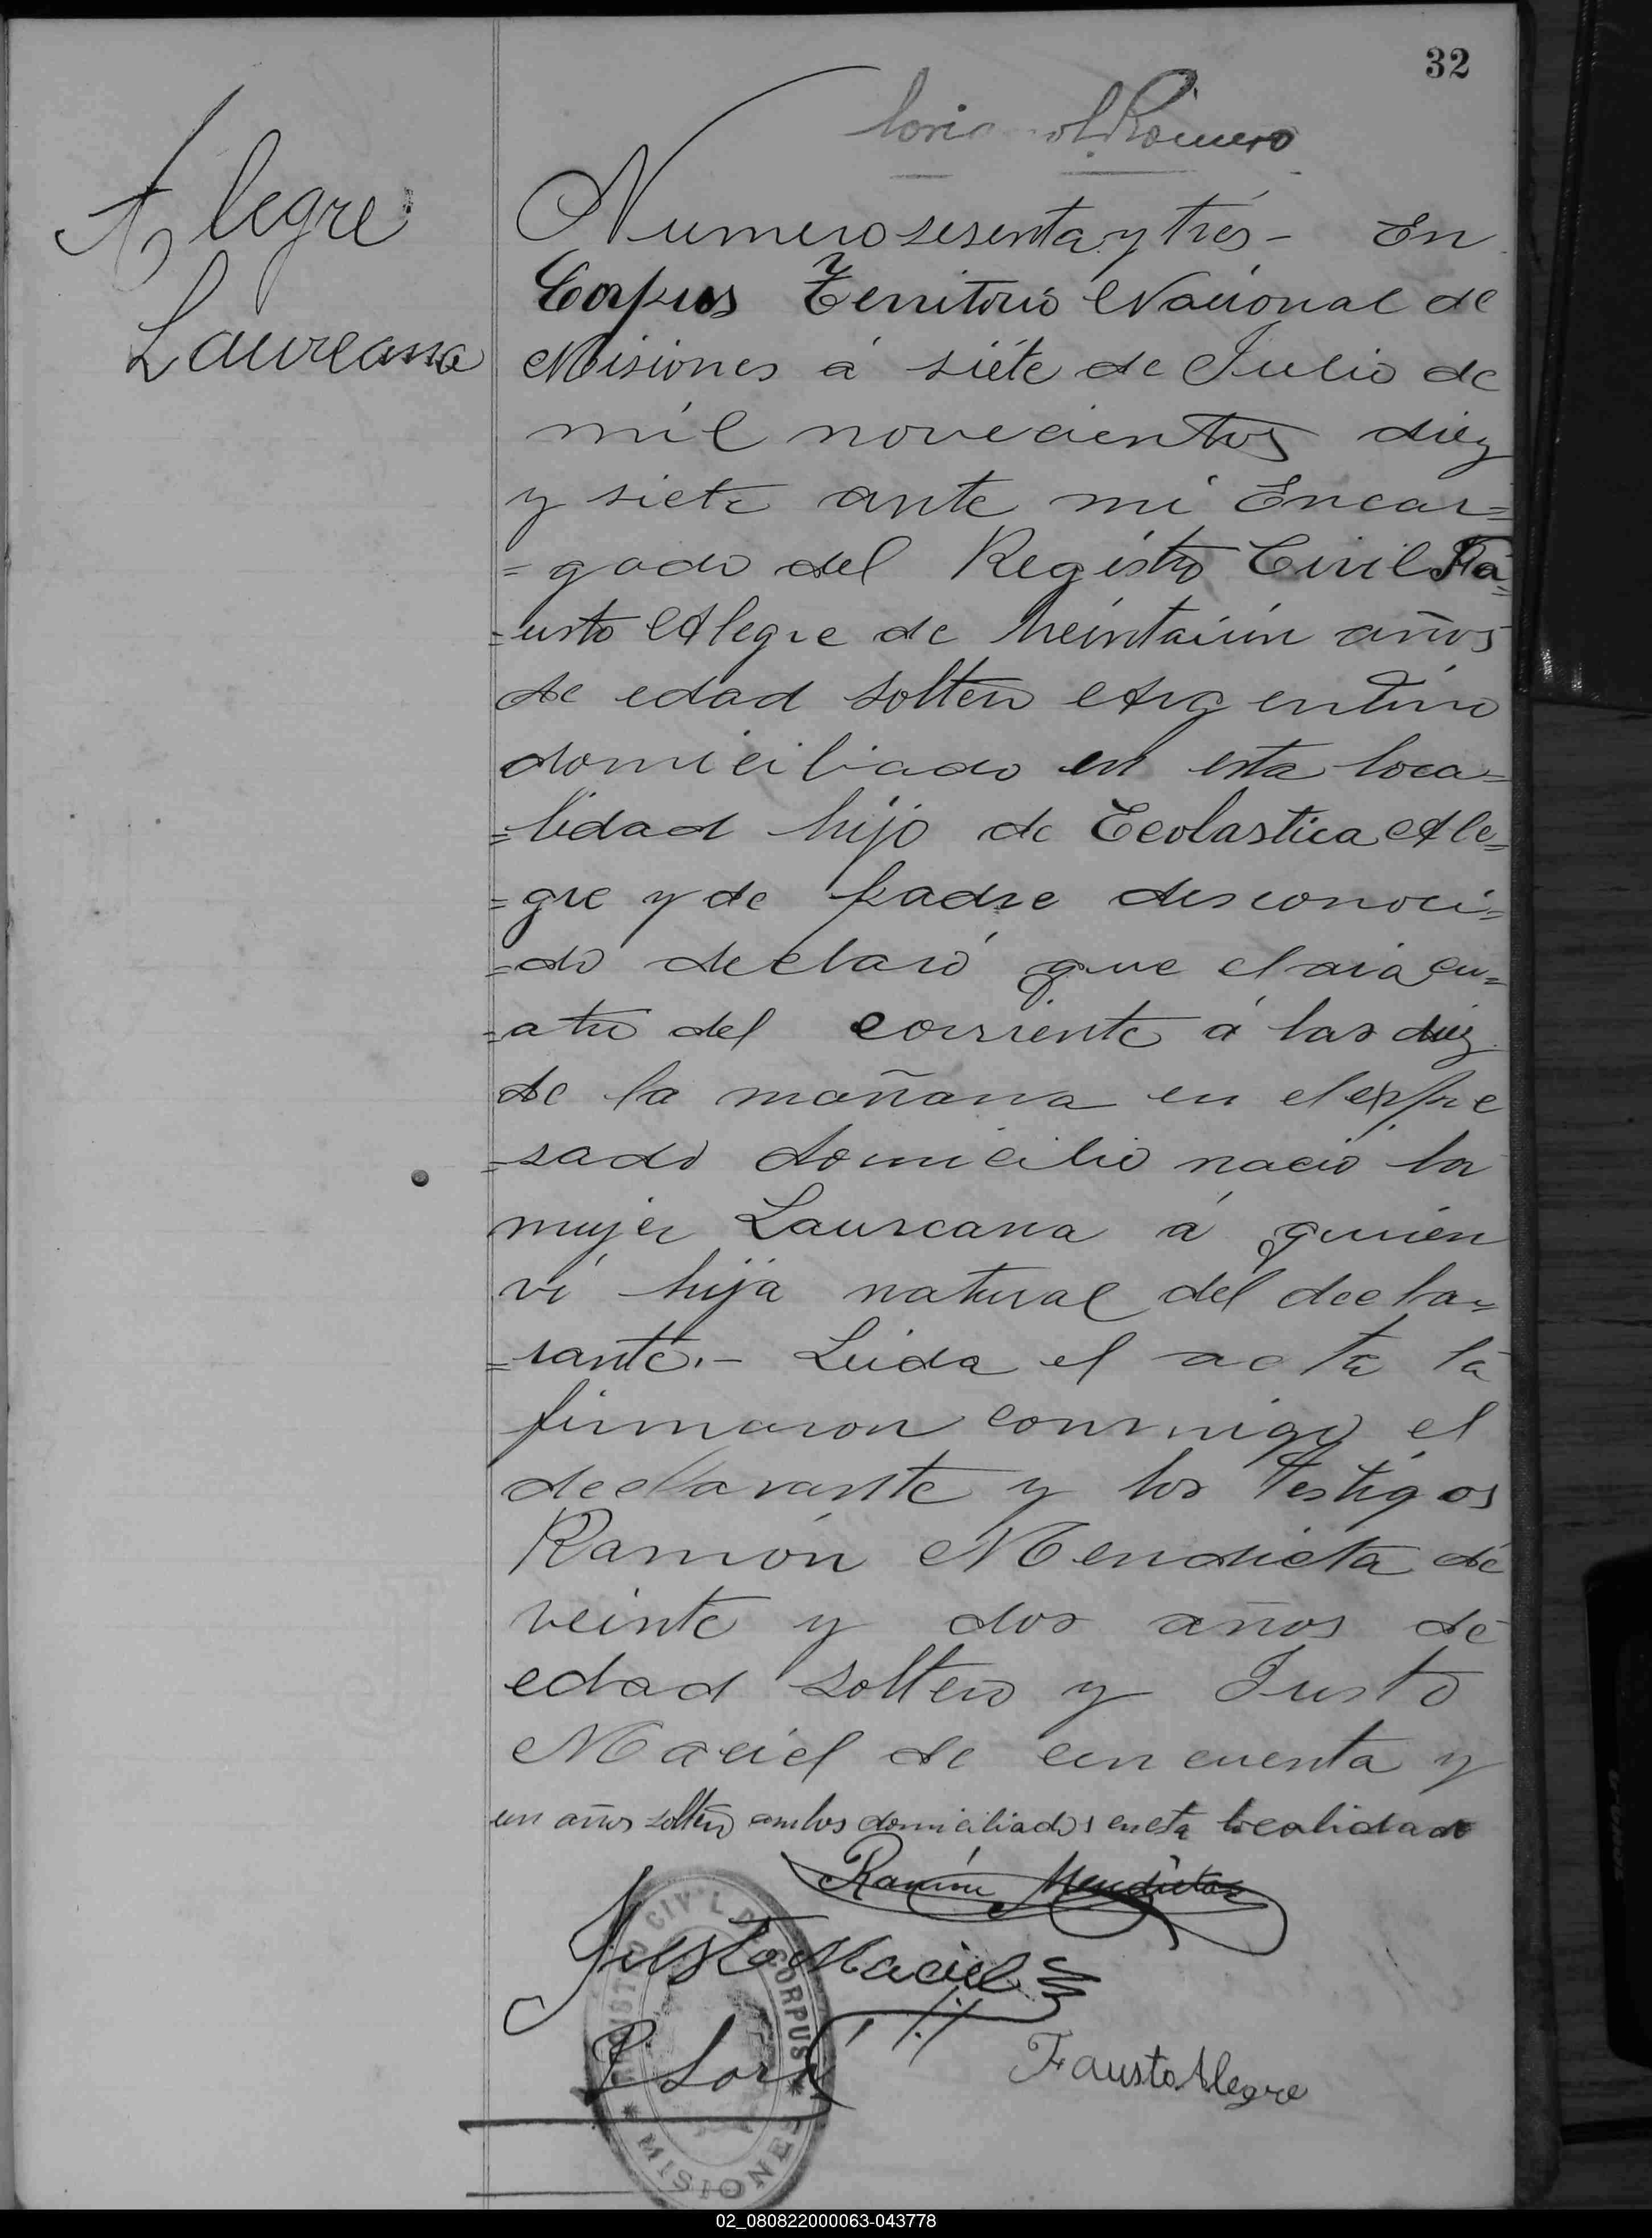 32
Romero
Alegre
Laureana
Numero sesenta y trés - En
Corpus Territorio Nacional de
Misiones á siéte de Julio de
mil novecientos diez
y siete ante mi Encar=
=gado del Registro Civil Fa=
=usto Alegre de treintaiún años
de edad soltero Argentino
domiciliado en esta loca=
=lidad hijo de Ecolastica Ale=
=gre y de padre desconoci=
=do declaró que el dia cu=
=atro del corriente á las diez
de la mañana en el expre
=sado domicilio nació la
mujer Laureana á quien
vi hija natural del decla=
=rante.- Leida el acta la
firmaron conmigo el
declarante y los testigos
Ramón Mendieta de
veinte y dos años de
edad soltero y Justo
Maciel de cincuenta y
un años soltero ambos domiciliados en esta localidad
Ramón Mendieta
Justo Maciel
Fausto Alegre
CIVIL DE CORPUS
* MISIONES *
02_080822000063-043778